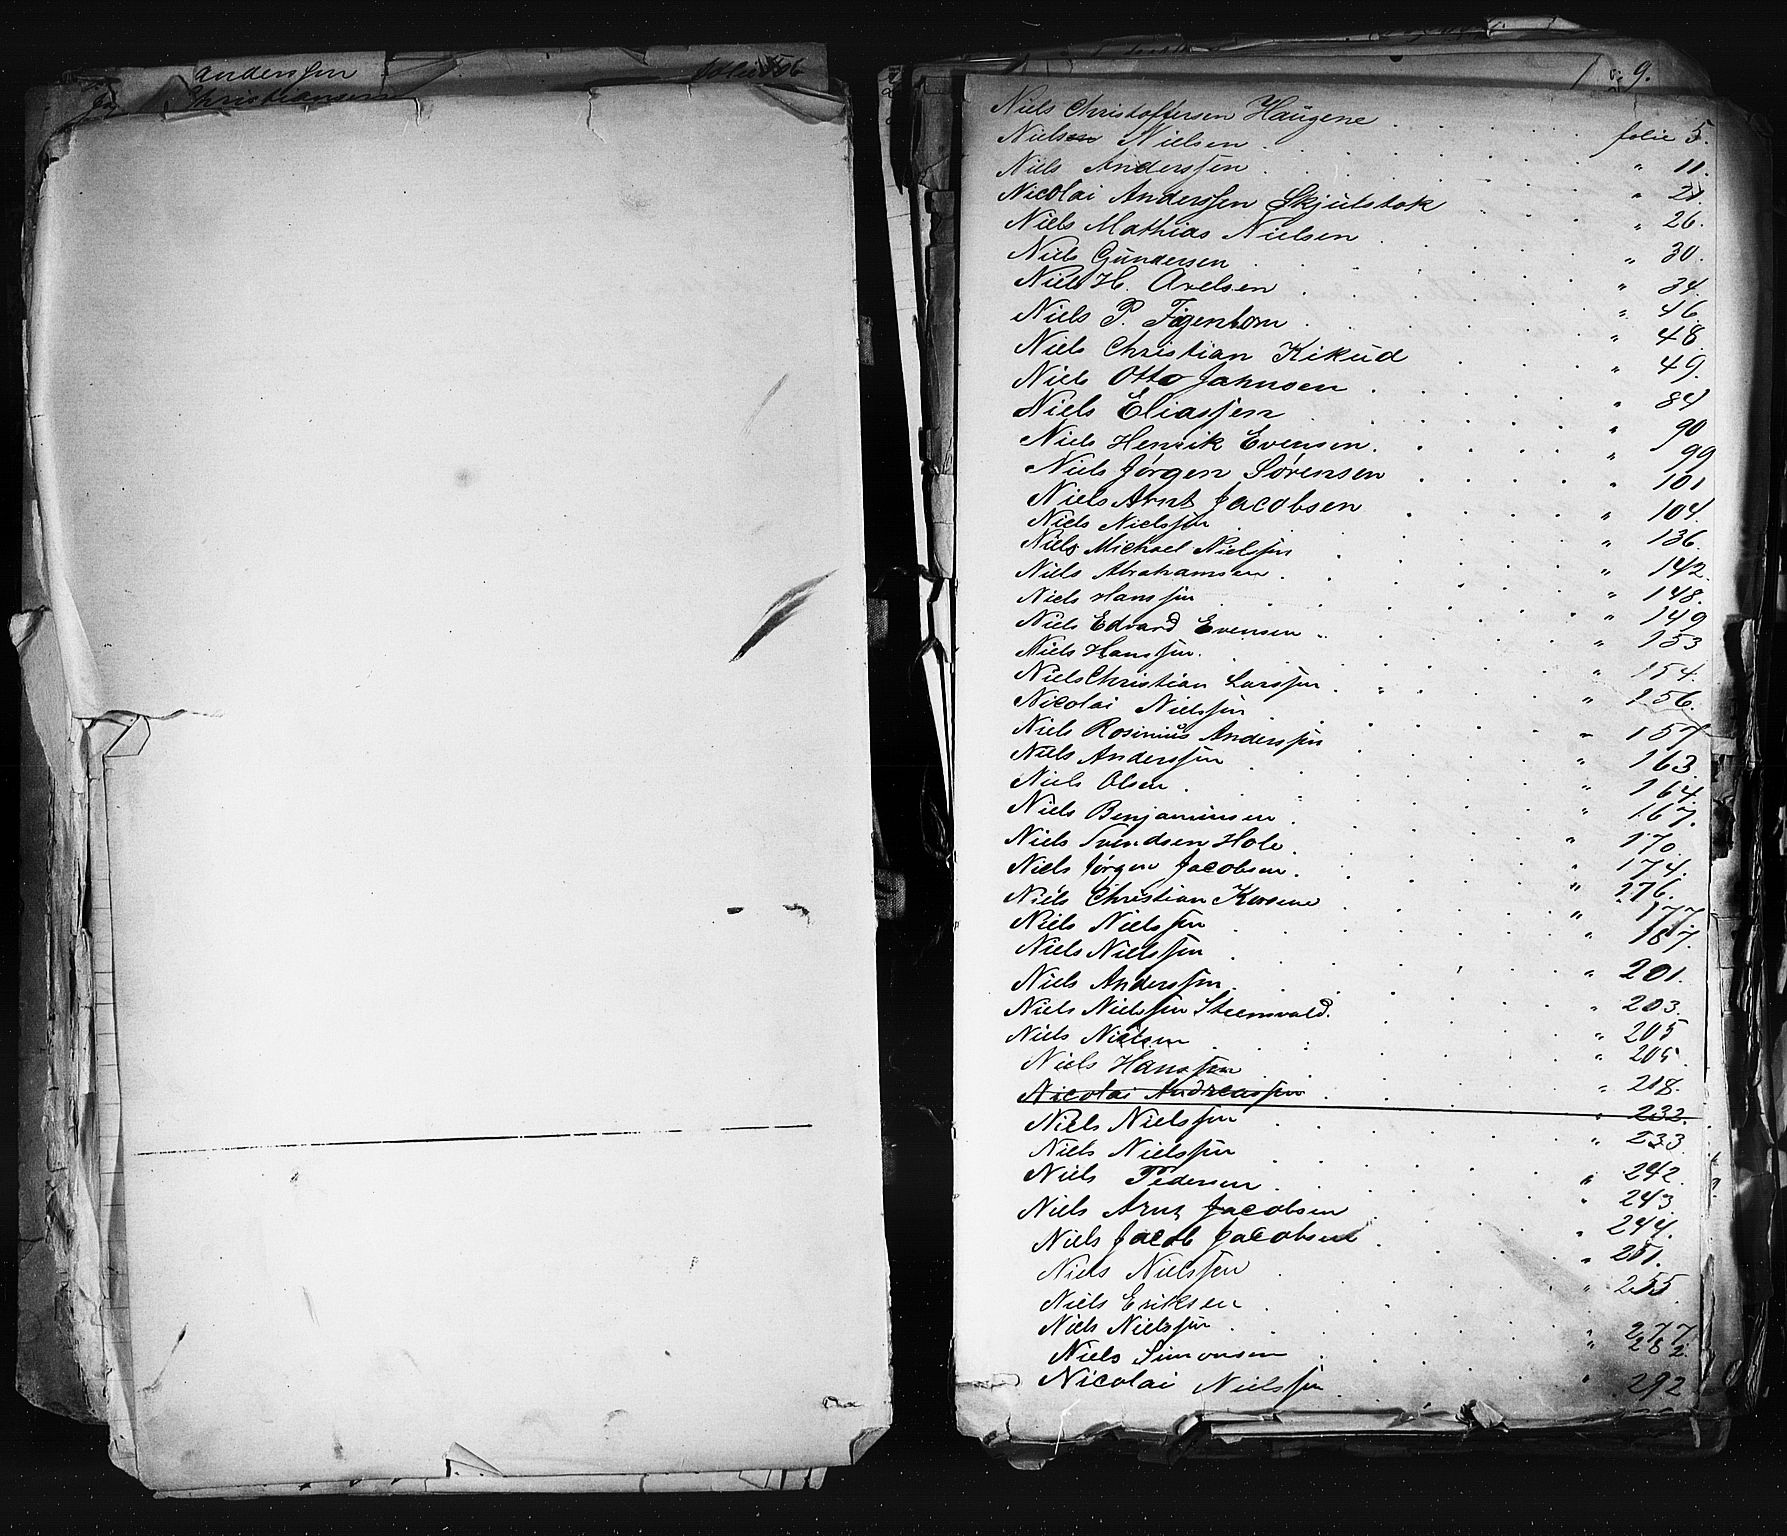 Anderssen
Christiansen
9.
Niels Christoffersen Haugene folie 5.
Nielsen Nielsen " 11.
Niels Anderssen " 21.
Nicolai Anderssen Skjulstok " 26.
Niels Mathias Nielsen " 30.
Niels Gundersen " 34.
Niels H. Axelsen " 46.
Niels P. Figenbom " 48.
Niels Christian Kikud " 49.
Niels Otto Jahnsen " 84
Niels Eliassen " 90
Niels Henrik Evensen " 99
Niels Jørgen Sørensen " 101
Niels Arnt Jacobsen " 104.
Niels Nielssen " 136.
Niels Michael Nielssen " 142.
Niels Abrahamsen " 148.
Niels Hanssen " 149
Niels Edvard Evensen " 153
Niels Hanssen " 154.
Niels Christian Larssen " 256.
Nicolai Nielssen " 157
Niels Rosinius Anderssen " 163
Niels Anderssen " 164.
Niels Olsen " 167.
Niels Benjaminsen " 170
Niels Svendsen Hole " 174.
Niels Jørgen Jacobsen " 276.
Niels Christian Korsene " 177
Niels Nielssen " 187.
Niels Nielssen " 201.
Niels Anderssen " 203.
Niels Nielssen Steensvald " 205
Niels Nielsen " 205
Niels Hanssen " 218.
Nicolai Andreassen " 232.
Niels Nielssen " 233
Niels Nielssen " 242.
Niels Pedersen " 243.
Niels Arnt Jacobsen " 244.
Niels Jacob Jacobsen " 251.
Niels Nielssen " 255
Niels Eriksen
Niels Nielssen " 277
Niels Simonsen " 282.
Nicolai Nielssen " 292